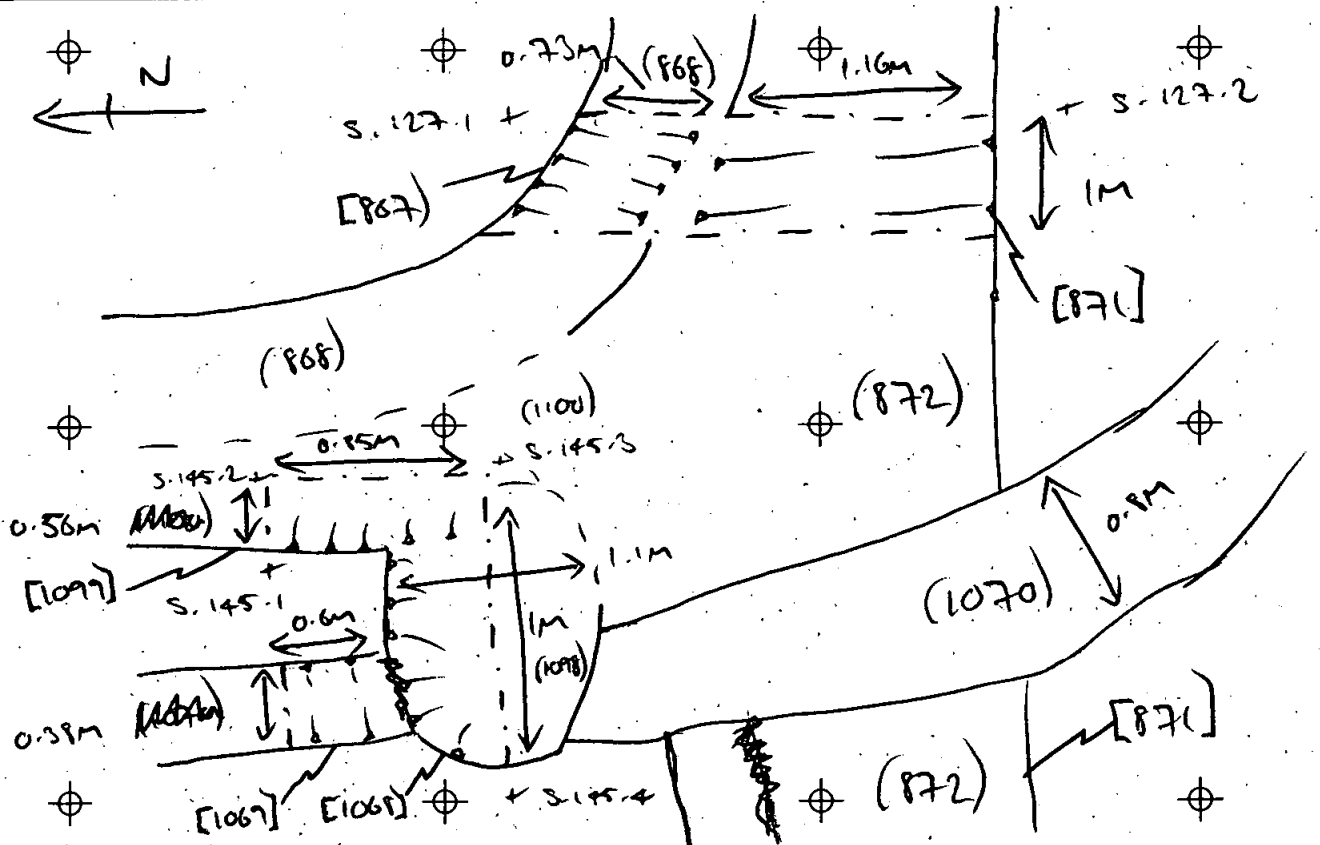 N
0.73m
(868)
1.16m
S.127.1
S.127.2
[867)
1M
[871]
(868)
(872)
(1100)
0.85m
S.145.2
S.145.3
0.56m
[1099]
S.145.1
1.1m
0.8m
(1070)
0.6m
1M
(1098)
0.39m
[871]
(872)
[1069]
[1068]
S.145.4